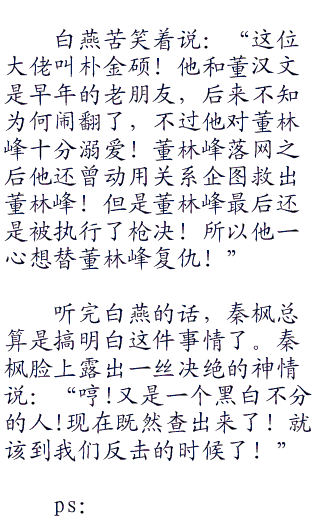 白燕苦笑着说：“这位
大佬叫朴金硕！他和董汉文
是早年的老朋友，后来不知
为何闹翻了，不过他对董林
峰十分溺爱！董林峰落网之
后他还曾动用关系企图救出
董林峰！但是董林峰最后还
是被执行了枪决！所以他一
心想替董林峰复仇！”
听完白燕的话，秦枫总
算是搞明白这件事情了。秦
枫脸上露出一丝决绝的神情
说：“哼!又是一个黑白不分
的人!现在既然查出来了！就
该到我们反击的时候了！”
ps: